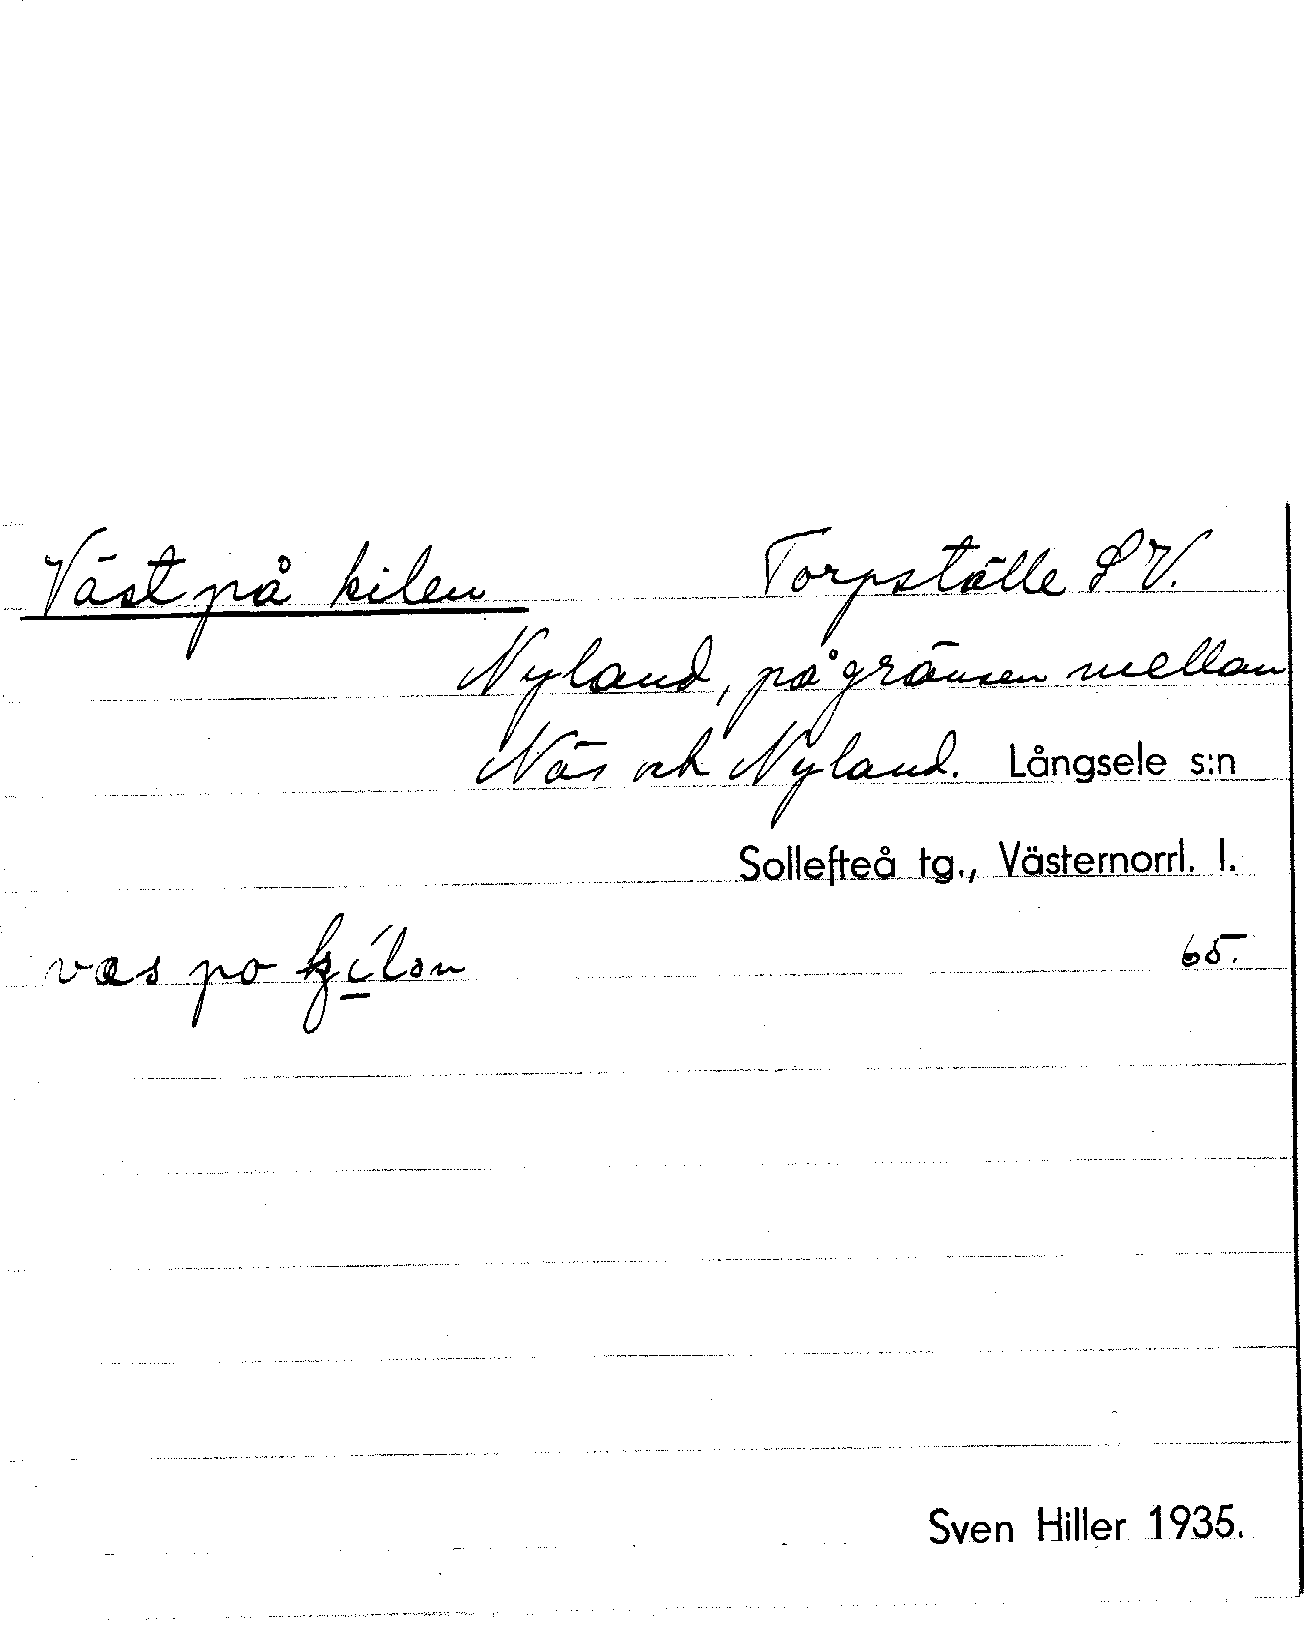 Väst på kilen Torpställe SV.
Nyland, på gränsen mellan
Näs och Nyland. Långsele s:n
Sollefteå tg., Västernorrl. l.
væs po 65.
Sven Hiller 1935.